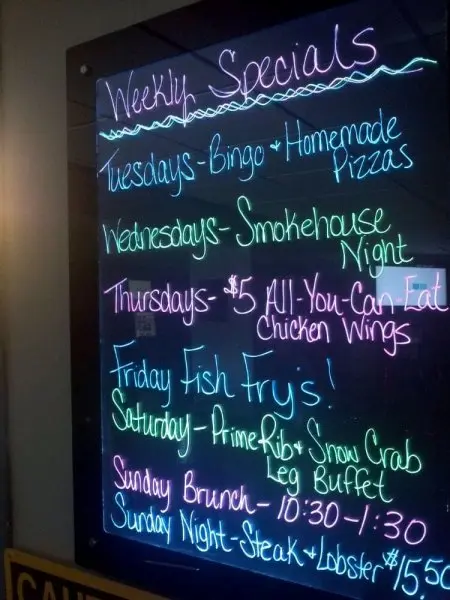 Weekly Specials
Tuesdays - Bingo & Homemade
Pizzas
Wednesdays - Smokehouse
Night
Thursdays - $5 All-You-Can-Eat
Chicken Wings
Friday Fish Fry's!
Saturday - Prime Rib & Snow Crab
Leg Buffet
Sunday Brunch - 10:30 - 1:30
Sunday Night - Steak & Lobster $15.50